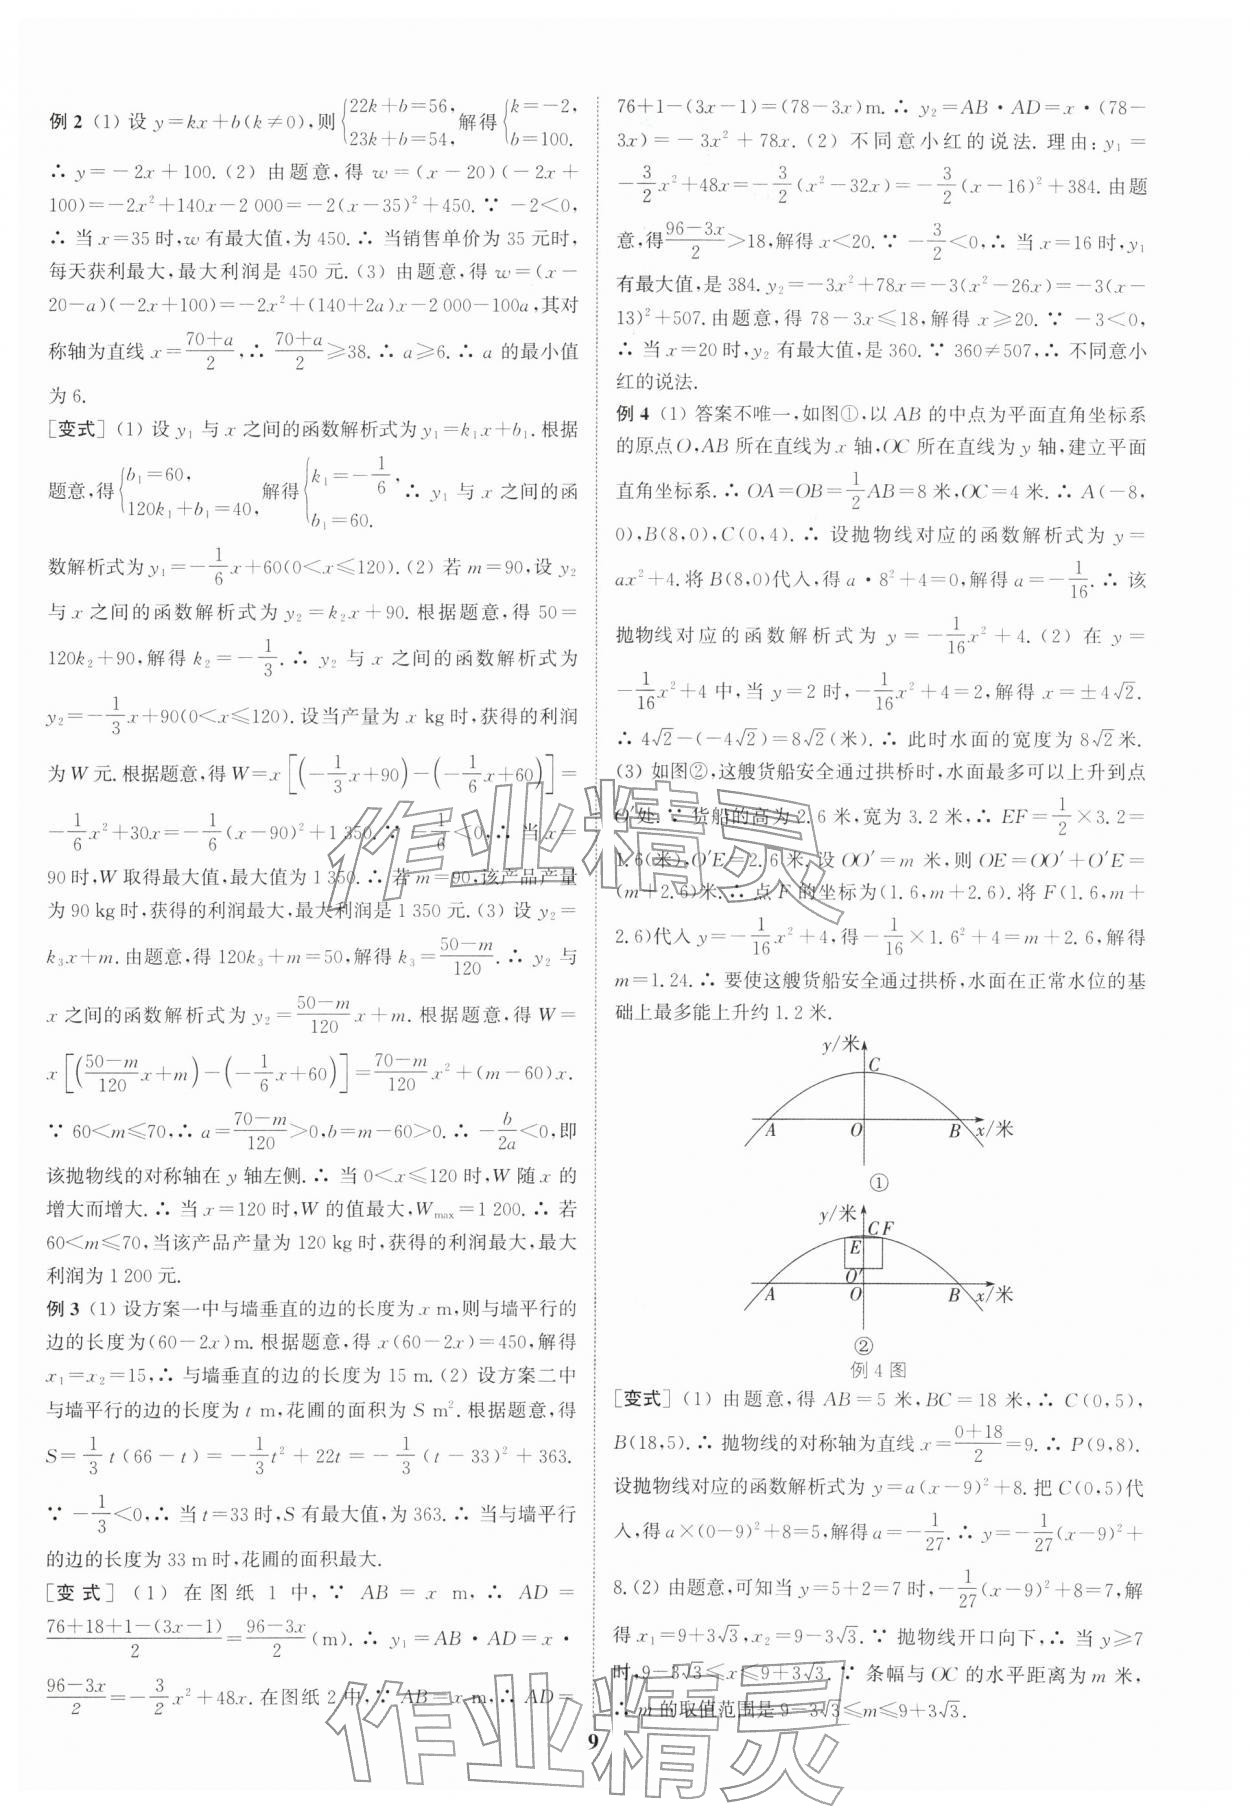 例 2 (1) 设 y=kx+b(k≠0),则{22k+b=56, 23k+b=54, 解得{k=-2, b=100.
∴ y=-2x+100. (2) 由题意,得 w=(x-20)(-2x+
100)=-2x²+140x-2 000=-2(x-35)²+450. ∵ -2<0,
∴ 当 x=35 时,w 有最大值,为 450. ∴ 当销售单价为 35 元时,
每天获利最大,最大利润是 450 元. (3) 由题意,得 w=(x-
20-a)(-2x+100)=-2x²+(140+2a)x-2 000-100a,其对
称轴为直线 x=(70+a)/2,∴ (70+a)/2≥38. ∴ a≥6. ∴ a 的最小值
为 6.
[变式] (1) 设 y₁ 与 x 之间的函数解析式为 y₁=k₁x+b₁. 根据
题意,得{b₁=60, 120k₁+b₁=40, 解得{k₁=-1/6, b₁=60. ∴ y₁ 与 x 之间的函
数解析式为 y₁=-1/6x+60(0<x≤120). (2) 若 m=90,设 y₂
与 x 之间的函数解析式为 y₂=k₂x+90. 根据题意,得 50=
120k₂+90,解得 k₂=-1/3. ∴ y₂ 与 x 之间的函数解析式为
y₂=-1/3x+90(0<x≤120). 设当产量为 x kg 时,获得的利润
为 W 元. 根据题意,得 W=x[(-1/3x+90)-(-1/6x+60)]=
-1/6x²+30x=-1/6(x-90)²+1 350. ∵ -1/6<0,∴ 当 x=
90 时,W 取得最大值,最大值为 1 350. ∴ 若 m=90,该产品产量
为 90 kg 时,获得的利润最大,最大利润是 1 350 元. (3) 设 y₂=
k₃x+m. 由题意,得 120k₃+m=50,解得 k₃=(50-m)/120. ∴ y₂ 与
x 之间的函数解析式为 y₂=(50-m)/120x+m. 根据题意,得 W=
x[((50-m)/120x+m)-(-1/6x+60)]=(70-m)/120x²+(m-60)x.
∵ 60<m≤70,∴ a=(70-m)/120>0,b=m-60>0. ∴ -b/2a<0,即
该抛物线的对称轴在 y 轴左侧. ∴ 当 0<x≤120 时,W 随 x 的
增大而增大. ∴ 当 x=120 时,W 的值最大,Wmax=1 200. ∴ 若
60<m≤70,当该产品产量为 120 kg 时,获得的利润最大,最大
利润为 1 200 元.
例 3 (1) 设方案一中与墙垂直的边的长度为 x m,则与墙平行的
边的长度为(60-2x)m. 根据题意,得 x(60-2x)=450,解得
x₁=x₂=15,∴ 与墙垂直的边的长度为 15 m. (2) 设方案二中
与墙平行的边的长度为 t m,花圃的面积为 S m². 根据题意,得
S=1/3t(66-t)=-1/3t²+22t=-1/3(t-33)²+363.
∵ -1/3<0,∴ 当 t=33 时,S 有最大值,为 363. ∴ 当与墙平行
的边的长度为 33 m 时,花圃的面积最大.
[变式] (1) 在图纸 1 中,∵ AB=x m,∴ AD=
(76+18+1-(3x-1))/2=(96-3x)/2(m). ∴ y₁=AB·AD=x·
(96-3x)/2=-3/2x²+48x. 在图纸 2 中,∵ AB=x m,∴ AD=
76+1-(3x-1)=(78-3x)m. ∴ y₂=AB·AD=x·(78-
3x)=-3x²+78x. (2) 不同意小红的说法. 理由:y₁=
-3/2x²+48x=-3/2(x²-32x)=-3/2(x-16)²+384. 由题
意,得(96-3x)/2>18,解得 x<20. ∵ -3/2<0,∴ 当 x=16 时,y₁
有最大值,是 384. y₂=-3x²+78x=-3(x²-26x)=-3(x-
13)²+507. 由题意,得 78-3x≤18,解得 x≥20. ∵ -3<0,
∴ 当 x=20 时,y₂ 有最大值,是 360. ∵ 360≠507,∴ 不同意小
红的说法.
例 4 (1) 答案不唯一,如图①,以 AB 的中点为平面直角坐标系
的原点 O,AB 所在直线为 x 轴,OC 所在直线为 y 轴,建立平面
直角坐标系. ∴ OA=OB=1/2AB=8 米,OC=4 米. ∴ A(-8,
0),B(8,0),C(0,4). ∴ 设抛物线对应的函数解析式为 y=
ax²+4. 将 B(8,0)代入,得 a·8²+4=0,解得 a=-1/16. ∴ 该
抛物线对应的函数解析式为 y=-1/16x²+4. (2) 在 y=
-1/16x²+4 中,当 y=2 时,-1/16x²+4=2,解得 x=±4√2.
∴ 4√2-(-4√2)=8√2(米). ∴ 此时水面的宽度为 8√2米.
(3) 如图②,这艘货船安全通过拱桥时,水面最多可以上升到点
O′处. ∵ 货船的高为 2.6 米,宽为 3.2 米,∴ EF=1/2×3.2=
1.6(米),O′E=2.6 米. 设 OO′=m 米,则 OE=OO′+O′E=
(m+2.6)米. ∴ 点 F 的坐标为(1.6,m+2.6). 将 F(1.6,m+
2.6)代入 y=-1/16x²+4,得-1/16×1.6²+4=m+2.6,解得
m=1.24. ∴ 要使这艘货船安全通过拱桥,水面在正常水位的基
础上最多能上升约 1.2 米.
y/米
C
A O B x/米
①
y/米
C F
E
O′
A O B x/米
②
例 4 图
[变式] (1) 由题意,得 AB=5 米,BC=18 米,∴ C(0,5),
B(18,5). ∴ 抛物线的对称轴为直线 x=(0+18)/2=9. ∴ P(9,8).
设抛物线对应的函数解析式为 y=a(x-9)²+8. 把 C(0,5)代
入,得 a×(0-9)²+8=5,解得 a=-1/27. ∴ y=-1/27(x-9)²+
8. (2) 由题意,可知当 y=5+2=7 时,-1/27(x-9)²+8=7,解
得 x₁=9+3√3,x₂=9-3√3. ∵ 抛物线开口向下,∴ 当 y≥7
时,9-3√3≤x≤9+3√3. ∵ 条幅与 OC 的水平距离为 m 米,
∴ m 的取值范围是 9-3√3≤m≤9+3√3.
9
作业精灵
作业精灵